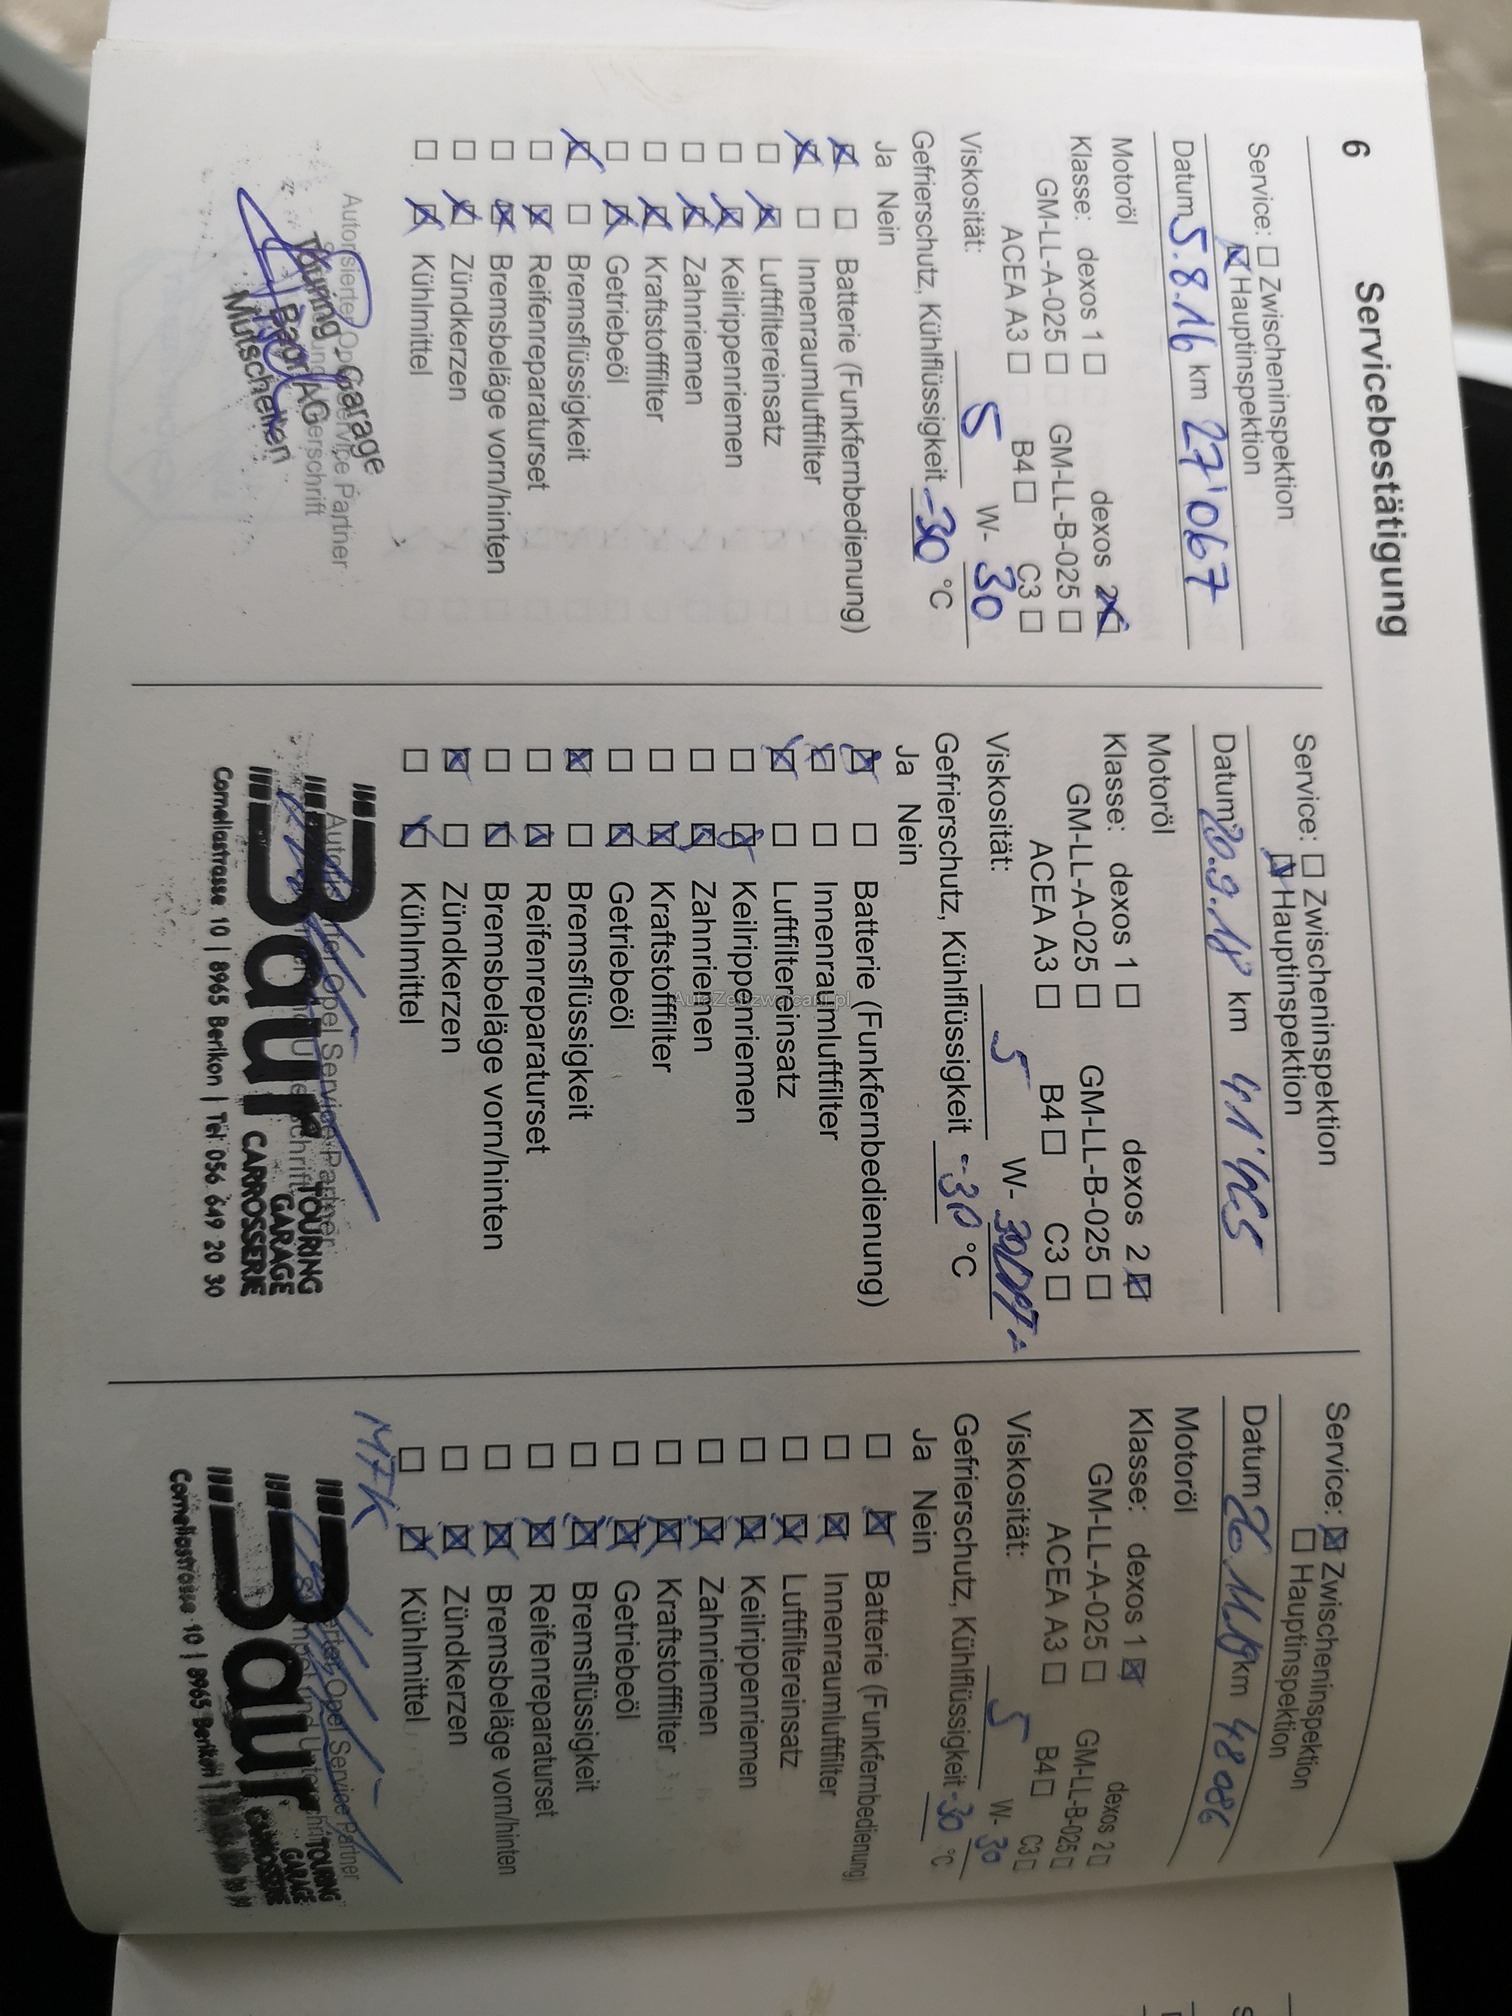 6
Servicebestätigung
Service: ☐ Zwischeninspektion
☒ Hauptinspektion
Datum 5.8.16 km 27'067
Motoröl
Klasse: dexos 1 ☐ dexos 2 ☒
GM-LL-A-025 ☐ GM-LL-B-025 ☐
ACEA A3 ☐ B4 ☐ C3 ☐
Viskosität: 5 W- 30
Gefrierschutz, Kühlflüssigkeit -30 °C
Ja Nein
☒ ☐ Batterie (Funkfernbedienung)
☒ ☐ Innenraumluftfilter
☐ ☒ Luftfiltereinsatz
☐ ☒ Keilrippenriemen
☐ ☒ Zahnriemen
☐ ☒ Kraftstofffilter
☐ ☒ Getriebeöl
☒ ☐ Bremsflüssigkeit
☐ ☒ Reifenreparaturset
☐ ☒ Bremsbeläge vorn/hinten
☐ ☒ Zündkerzen
☐ ☒ Kühlmittel
Autorisierter Opel Service Partner
Touring-Garage
Baur AG
Mutschellen
Service: ☐ Zwischeninspektion
☒ Hauptinspektion
Datum 20.9.18 km
Motoröl
Klasse: dexos 1 ☐ dexos 2 ☒
GM-LL-A-025 ☐ GM-LL-B-025 ☐
ACEA A3 ☐ B4 ☐ C3 ☐
Viskosität: 5 W- 30
Gefrierschutz, Kühlflüssigkeit -30 °C
Ja Nein
☒ ☐ Batterie (Funkfernbedienung)
☒ ☐ Innenraumluftfilter
☒ ☐ Luftfiltereinsatz
☐ ☒ Keilrippenriemen
☐ ☒ Zahnriemen
☐ ☒ Kraftstofffilter
☐ ☒ Getriebeöl
☒ ☐ Bremsflüssigkeit
☐ ☒ Reifenreparaturset
☐ ☒ Bremsbeläge vorn/hinten
☒ ☐ Zündkerzen
☐ ☒ Kühlmittel
Autorisierter Opel Service Partner
Baur TOURING
GARAGE
CARROSSERIE
Corneliastrasse 10 | 8965 Berikon | Tel 056 649 20 30
Service: ☒ Zwischeninspektion
☐ Hauptinspektion
Datum 26.11.19 km 48086
Motoröl
Klasse: dexos 1 ☒ dexos 2 ☐
GM-LL-A-025 ☐ GM-LL-B-025 ☐
ACEA A3 ☐ B4 ☐ C3 ☐
Viskosität: 5 W- 30
Gefrierschutz, Kühlflüssigkeit -30 °C
Ja Nein
☐ ☒ Batterie (Funkfernbedienung)
☐ ☒ Innenraumluftfilter
☐ ☒ Luftfiltereinsatz
☐ ☒ Keilrippenriemen
☐ ☒ Zahnriemen
☐ ☒ Kraftstofffilter
☐ ☒ Getriebeöl
☐ ☒ Bremsflüssigkeit
☐ ☒ Reifenreparaturset
☐ ☒ Bremsbeläge vorn/hinten
☐ ☒ Zündkerzen
☐ ☒ Kühlmittel
MFK
Opel Service Partner
Baur TOURING
GARAGE
CARROSSERIE
Corneliastrasse 10 | 8965 Berikon |